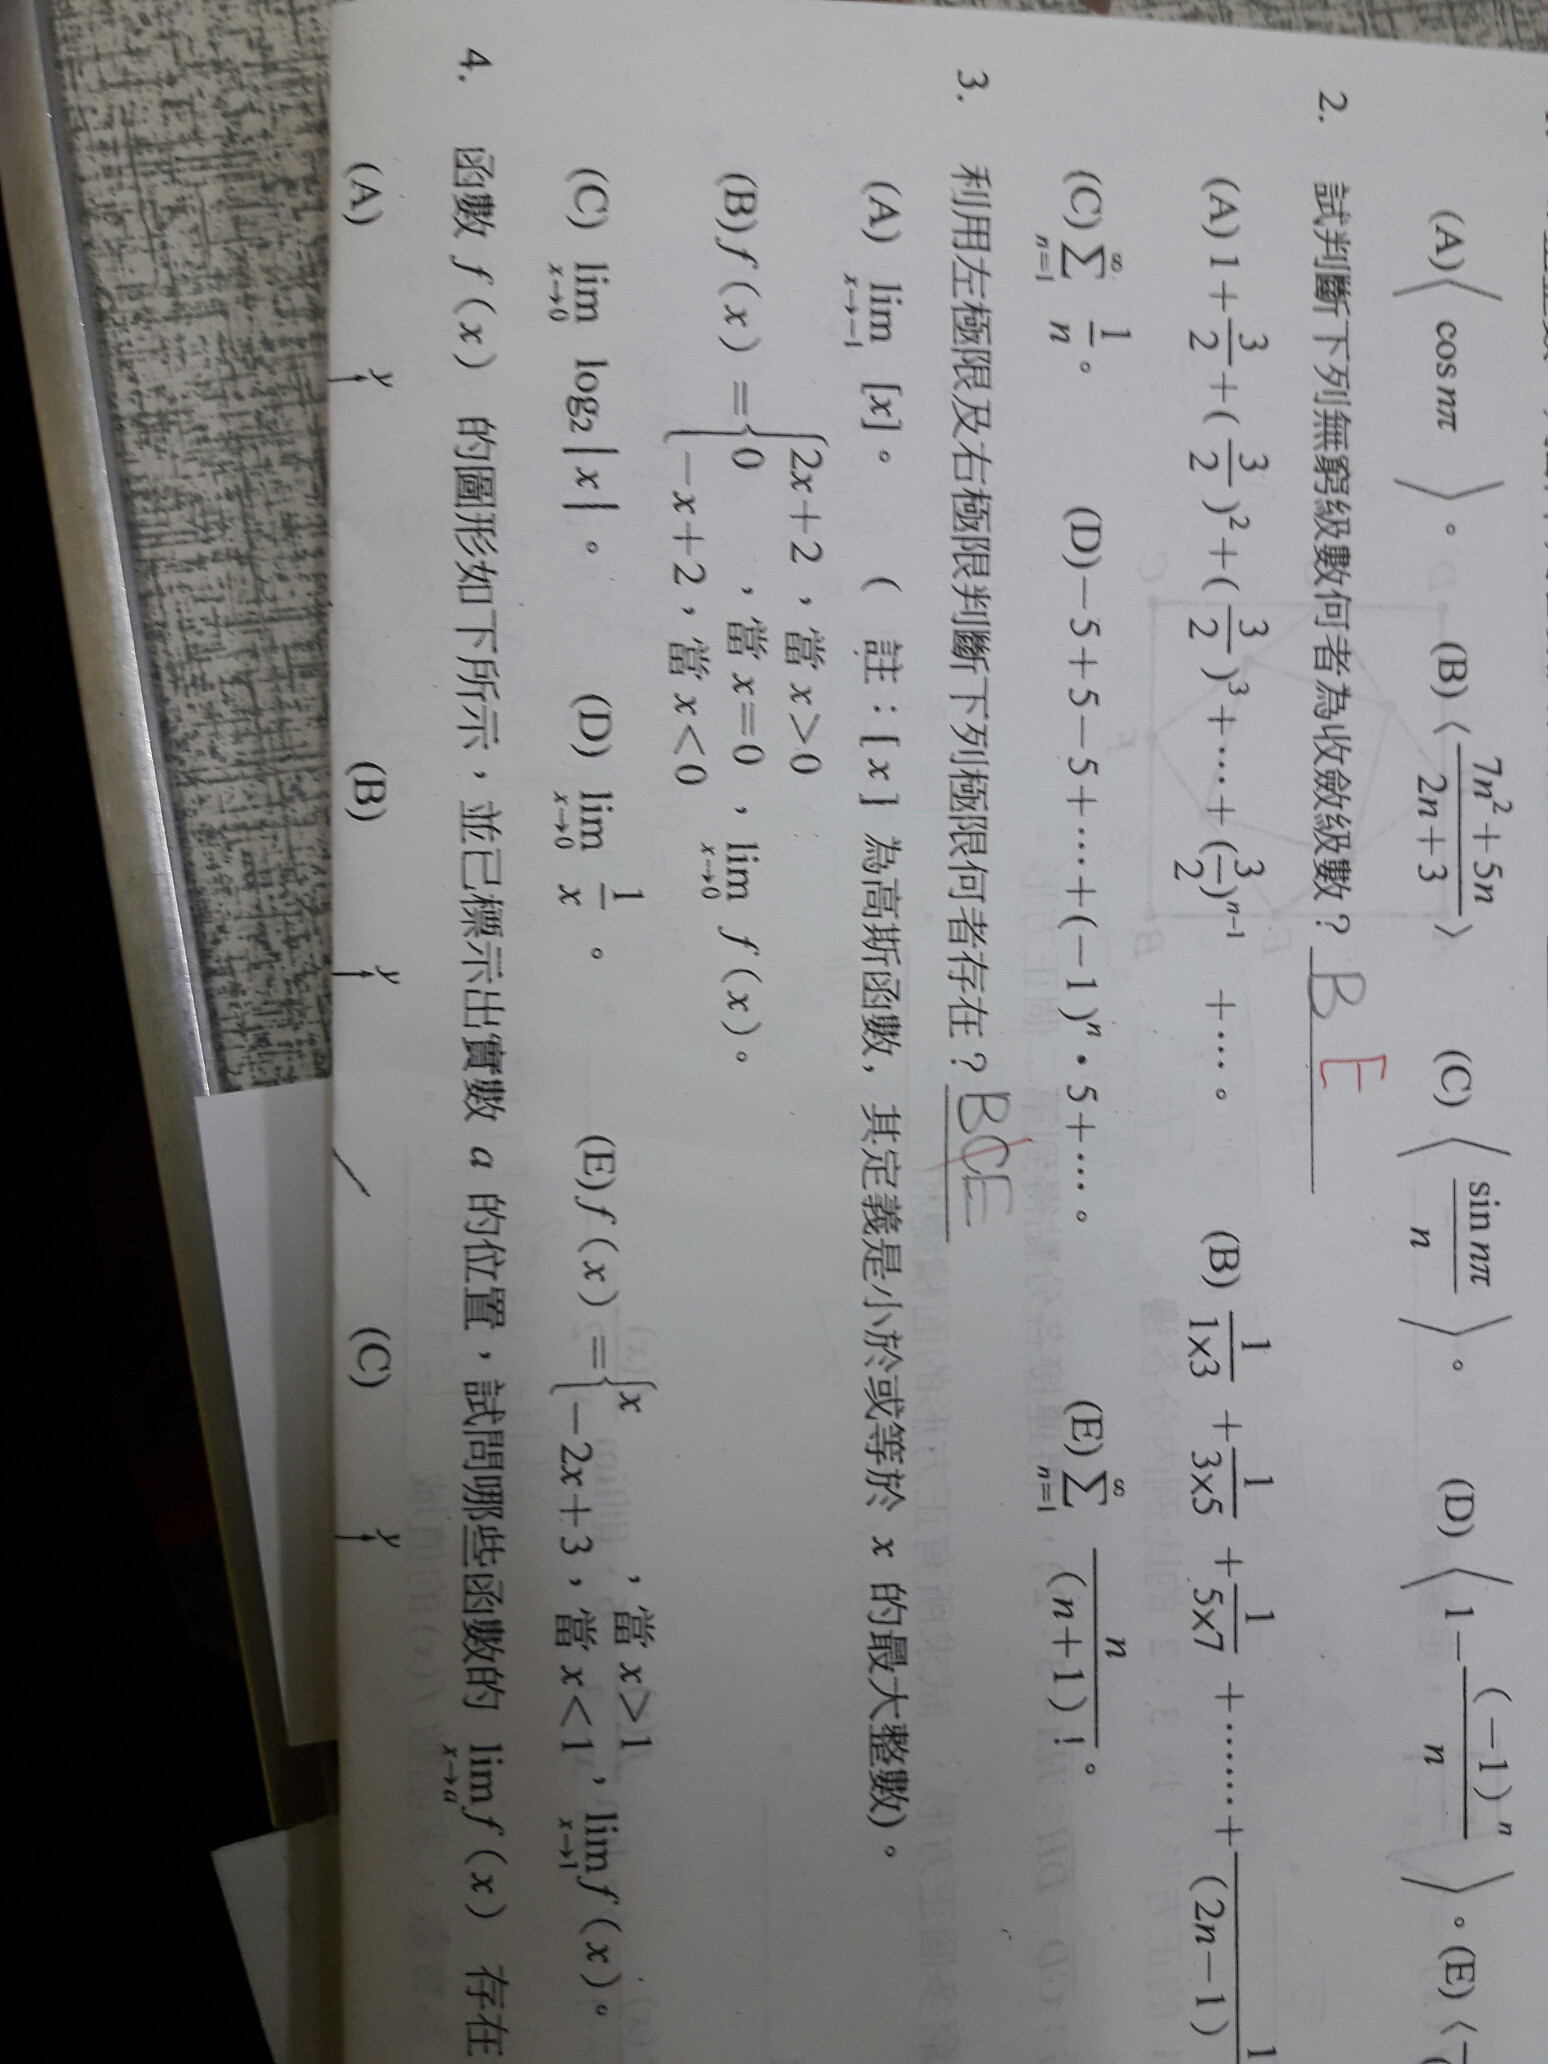 (A)⟨ cos nπ ⟩。 (B)⟨ (7n²+5n)/(2n+3) ⟩ (C)⟨ (sin nπ)/n ⟩。 (D)⟨ 1-(-1)ⁿ/n ⟩。(E)⟨
2. 試判斷下列無窮級數何者為收斂級數? B E
(A) 1+3/2+(3/2)²+(3/2)³+…+(3/2)ⁿ⁻¹ +…。 (B) 1/(1x3)+1/(3x5)+1/(5x7)+……+1/(2n-1)
(C) ∑_{n=1}^{∞} 1/n。 (D)-5+5-5+…+(-1)ⁿ•5+…。 (E) ∑_{n=1}^{∞} n/(n+1)!。
3. 利用左極限及右極限判斷下列極限何者存在? BCE
(A) lim_{x→-1} [x]。 (註:[x] 為高斯函數,其定義是小於或等於 x 的最大整數)。
(B) f(x)={2x+2,當x>0
0 ,當x=0,lim_{x→0} f(x)。
-x+2,當x<0
(C) lim_{x→0} log₂|x|。 (D) lim_{x→0} 1/x。 (E) f(x)={x ,當x>1
-2x+3,當x<1,lim_{x→1} f(x)。
4. 函數 f(x) 的圖形如下所示,並已標示出實數 a 的位置,試問哪些函數的 lim_{x→a} f(x) 存在
(A) y (B) y (C) y